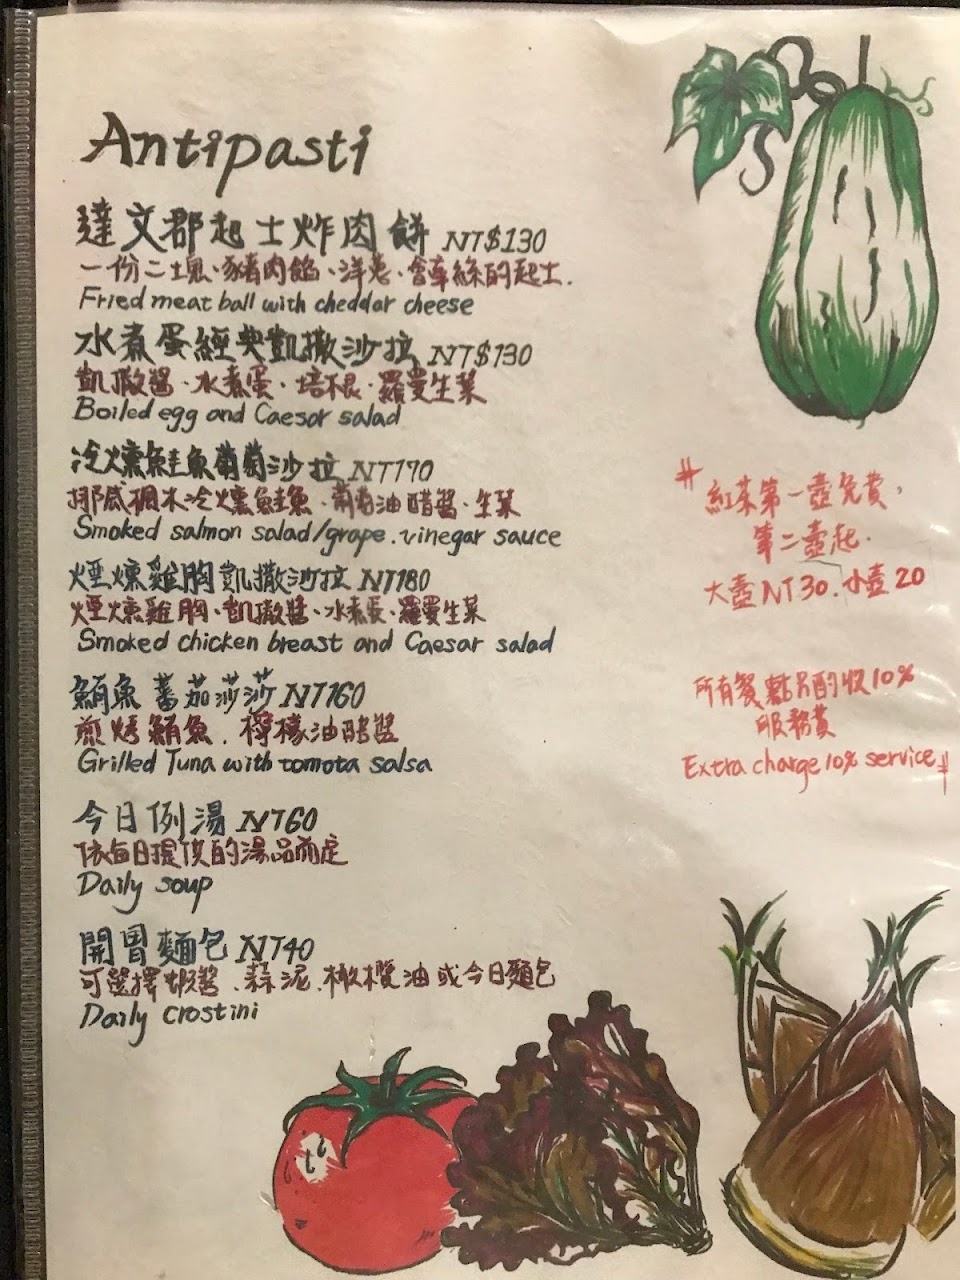 Antipasti
達文郡起士炸肉餅 NT$130
一份二塊、豬肉餡、洋蔥、含車絲的起士.
Fried meat ball with cheddar cheese
水煮蛋經典凱撒沙拉 NT$130
凱撒醬、水煮蛋、培根、羅蔓生菜
Boiled egg and Caesar salad
冷燻鮭魚葡萄沙拉 NT170
挪威楓木冷燻鮭魚、葡萄油醋醬、生菜
Smoked salmon salad/grape.vinegar sauce
煙燻雞胸凱撒沙拉 NT180
煙燻雞胸、凱撒醬、水煮蛋、羅蔓生菜
Smoked chicken breast and Caesar salad
鮪魚蕃茄莎莎 NT160
煎烤鮪魚.檸檬油醋醬
Grilled Tuna with tomota salsa
今日例湯 NT60
依每日提供的湯品而定
Daily soup
開胃麵包 NT40
可選擇蝦醬.蒜泥.橄欖油或今日麵包
Daily crostini
#紅茶第一壺免費,
第二壺起.
大壺NT30.小壺20
所有餐點另酌收10%
服務費
Extra charge 10% service#